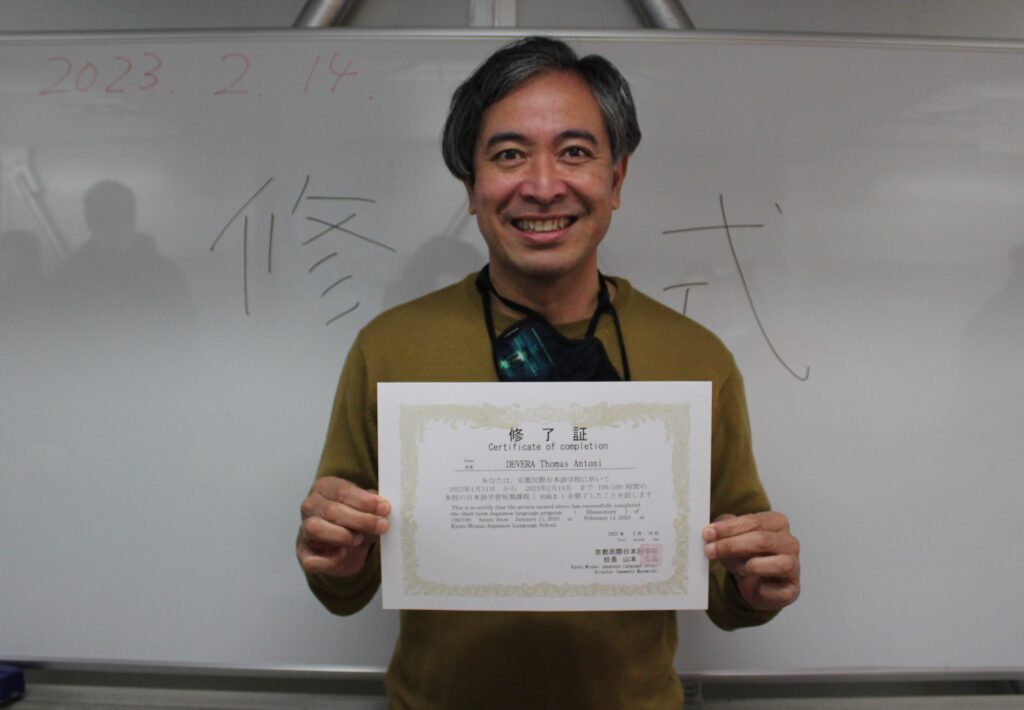 2023. 2. 14.
修 式
修 了 証
Certificate of completion
Name
氏名 DEVERA Thomas Antoni
あなたは、京都民際日本語学校に於いて
2023年1月11日 から 2023年2月14日 まで 100/100 時間の
本校の日本語学習短期課程( )を修了したことを証します
This is to certify that the person named above has successfully completed
the short term Japanese language program ( Elementary ) of
100/100 hours from January 11, 2023 to February 14, 2023 at
Kyoto Minsai Japanese Language School.
2023 年 2 月 14 日
Year month day
京都民際日本語学校
校長 山本
Kyoto Minsai Japanese Language School
Director Yamamoto